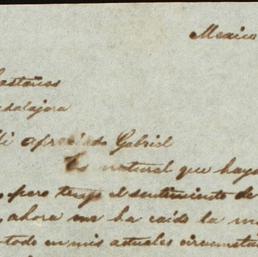 Mexico
astaños
adalajara
Mi apreciado Gabriel
Es natural que haya
pero tengo el sentimiento de
ahora me ha caido la m
todo en mis actuales circunsta